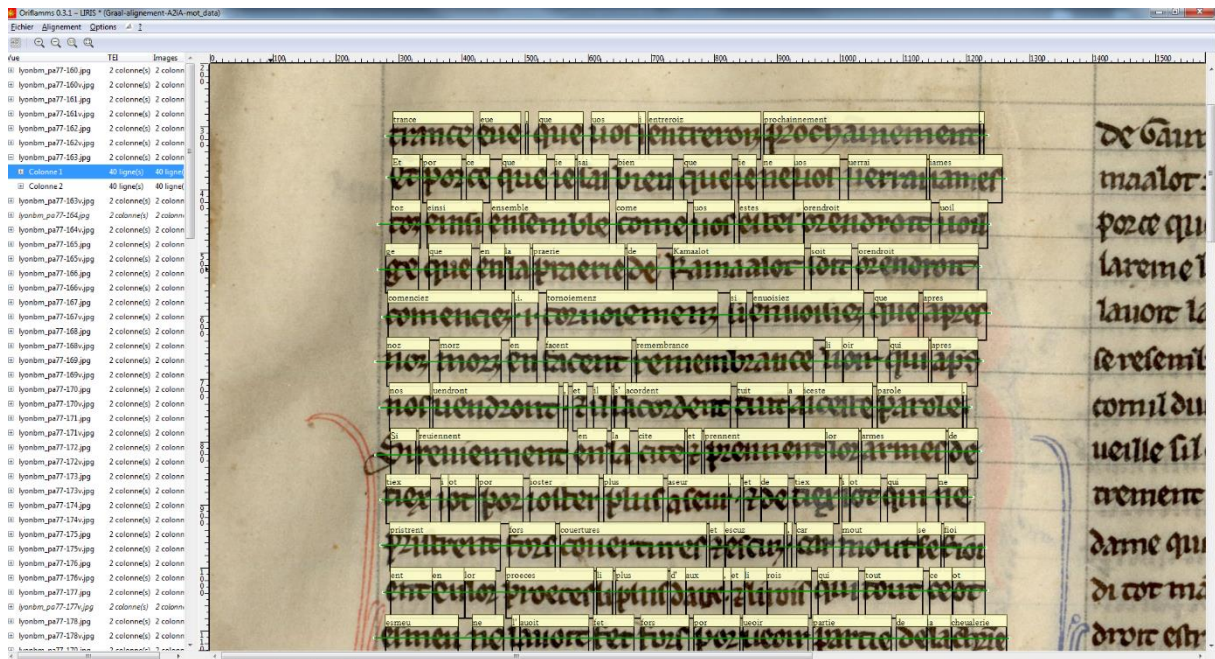 Oriflamms 0.3.1 – LIRIS * (Graal-alignement-A2iA-mot_data)
Fichier Alignement Options ?
Vue TEI Images
0 100 200 300 400 500 600 700 800 900 1000 1100 1200 1300 1400 1500
lyonbm_pa77-160.jpg 2 colonne(s) 2 colonn
lyonbm_pa77-160v.jpg 2 colonne(s) 2 colonn
lyonbm_pa77-161.jpg 2 colonne(s) 2 colonn
lyonbm_pa77-161v.jpg 2 colonne(s) 2 colonn
lyonbm_pa77-162.jpg 2 colonne(s) 2 colonn
lyonbm_pa77-162v.jpg 2 colonne(s) 2 colonn
lyonbm_pa77-163.jpg 2 colonne(s) 2 colonn
Colonne 1 40 ligne(s) 40 ligne(
Colonne 2 40 ligne(s) 40 ligne(
lyonbm_pa77-163v.jpg 2 colonne(s) 2 colonn
lyonbm_pa77-164.jpg 2 colonne(s) 2 colonn
lyonbm_pa77-164v.jpg 2 colonne(s) 2 colonn
lyonbm_pa77-165.jpg 2 colonne(s) 2 colonn
lyonbm_pa77-165v.jpg 2 colonne(s) 2 colonn
lyonbm_pa77-166.jpg 2 colonne(s) 2 colonn
lyonbm_pa77-166v.jpg 2 colonne(s) 2 colonn
lyonbm_pa77-167.jpg 2 colonne(s) 2 colonn
lyonbm_pa77-167v.jpg 2 colonne(s) 2 colonn
lyonbm_pa77-168.jpg 2 colonne(s) 2 colonn
lyonbm_pa77-168v.jpg 2 colonne(s) 2 colonn
lyonbm_pa77-169.jpg 2 colonne(s) 2 colonn
lyonbm_pa77-169v.jpg 2 colonne(s) 2 colonn
lyonbm_pa77-170.jpg 2 colonne(s) 2 colonn
lyonbm_pa77-170v.jpg 2 colonne(s) 2 colonn
lyonbm_pa77-171.jpg 2 colonne(s) 2 colonn
lyonbm_pa77-171v.jpg 2 colonne(s) 2 colonn
lyonbm_pa77-172.jpg 2 colonne(s) 2 colonn
lyonbm_pa77-172v.jpg 2 colonne(s) 2 colonn
lyonbm_pa77-173.jpg 2 colonne(s) 2 colonn
lyonbm_pa77-173v.jpg 2 colonne(s) 2 colonn
lyonbm_pa77-174.jpg 2 colonne(s) 2 colonn
lyonbm_pa77-174v.jpg 2 colonne(s) 2 colonn
lyonbm_pa77-175.jpg 2 colonne(s) 2 colonn
lyonbm_pa77-175v.jpg 2 colonne(s) 2 colonn
lyonbm_pa77-176.jpg 2 colonne(s) 2 colonn
lyonbm_pa77-176v.jpg 2 colonne(s) 2 colonn
lyonbm_pa77-177.jpg 2 colonne(s) 2 colonn
lyonbm_pa77-177v.jpg 2 colonne(s) 2 colonn
lyonbm_pa77-178.jpg 2 colonne(s) 2 colonn
lyonbm_pa77-178v.jpg 2 colonne(s) 2 colonn
trance eue que uos entreroiz prochainnement
Et por ce que ie sai bien que ie ne uos uerrai iames
toz einsi ensemble come uos estes orendroit uoil
ge que en la praerie de Kamaalot soit orendroit
comenciez .i. tornoiemenz si enuoisiez que apres
noz morz en facent remembrance li oir qui apres
nos uendront. et il s' acordent tuit a iceste parole.
Si reuiennent en la cite et prennent lor armes de
tiex i ot por ioster plus aseur. et de tiex i ot qui ne
pristrent fors couertures et escuz. car mout se fioi
ent en lor proeces li plus d' aux. et li rois qui tout ce ot
esmeu ne l' auoit fet fors por ueoir partie de la cheualerie
de Gaur
maalot
porce que
lareine l
lauoit la
se resembl
com il du
ueille sil
trement
dame qu
di tot ma
droit estr